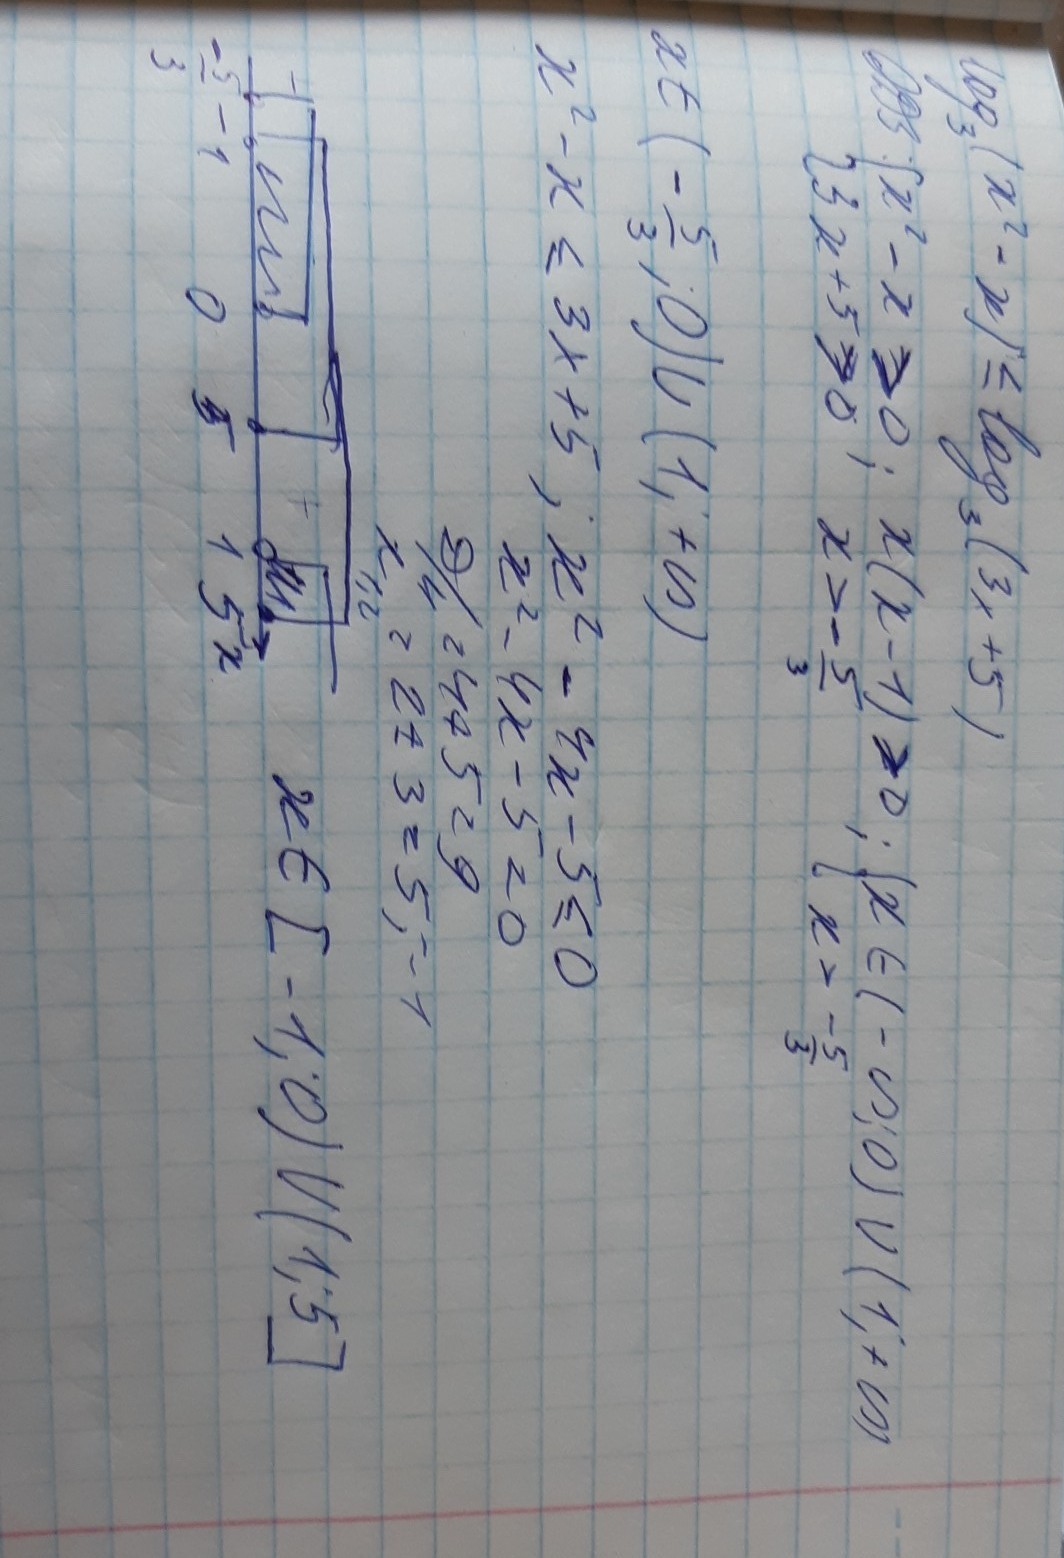 log₃(x² - x) ≤ log₃(3x + 5)
ОДЗ: { x² - x > 0; x(x - 1) > 0; { x ∈ (-∞; 0) ∪ (1; +∞)
{ 3x + 5 > 0; x > -5/3 { x > -5/3
x ∈ (-5/3; 0) ∪ (1; +∞)
x² - x ≤ 3x + 5; x² - 4x - 5 ≤ 0
x² - 4x - 5 = 0
D/4 = 4 + 5 = 9
x₁,₂ = 2 ± 3 = 5; -1
- +
-5/3 -1 0 1 5 x
x ∈ [-1; 0) ∪ (1; 5]